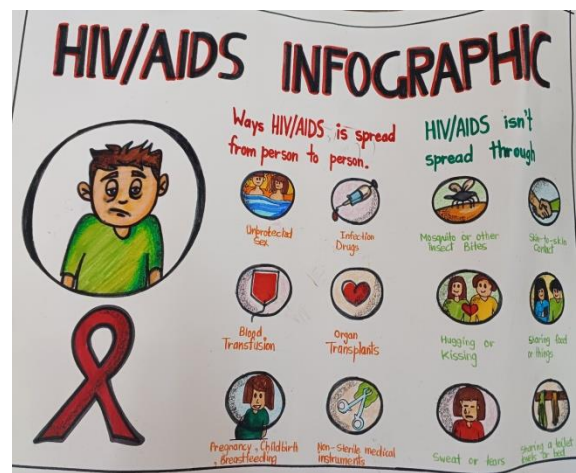 HIV/AIDS INFOGRAPHIC
Ways HIV/AIDS is spread
from person to person.
Unprotected
Sex
Infection
Drugs
Blood
Transfusion
Organ
Transplants
Pregnancy, Childbirth
, Breastfeeding
Non-Sterile medical
instruments
HIV/AIDS isn't
spread through
Mosquito or other
Insect Bites
Skin-to-skin
Contact
Hugging or
Kissing
Sharing food
or things
Sweat or tears
Sharing a toilet
or bed